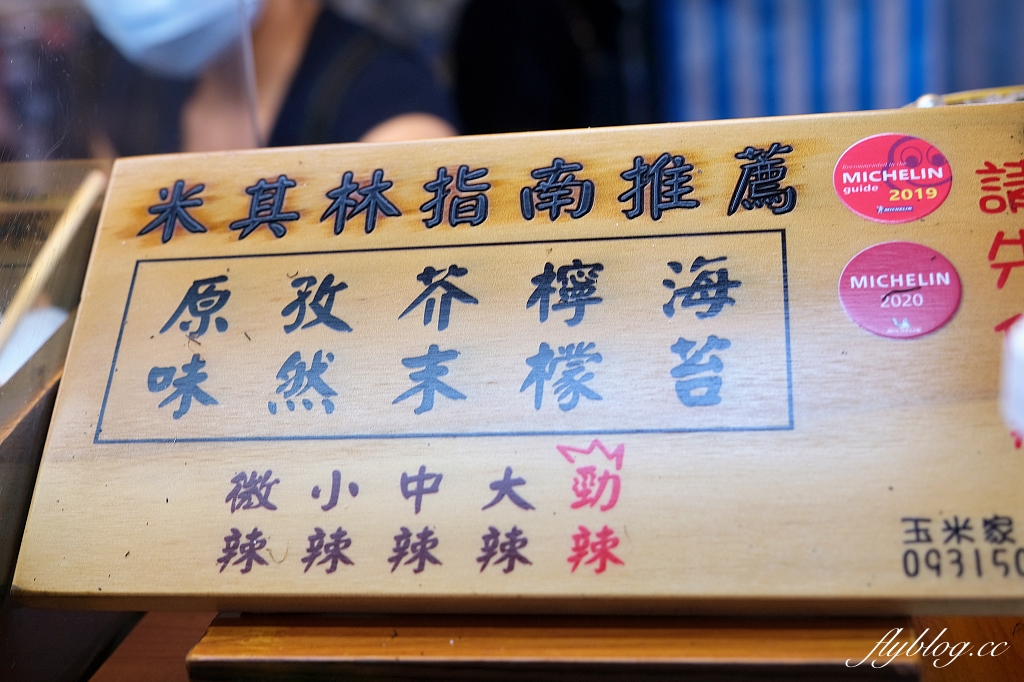 米其林指南推薦
原味 孜然 芥末 檸檬 海苔
微辣 小辣 中辣 大辣 勁辣
Recommended in the
MICHELIN
guide 2019
MICHELIN
MICHELIN
2020
請先
玉米家
093150
flyblog.cc